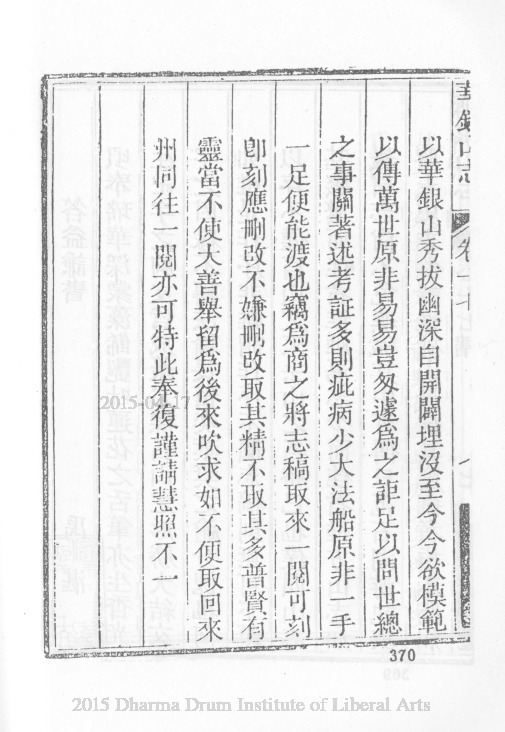 華銀山志
卷十七
以華銀山秀拔幽深自開闢埋沒至今今欲模範
以傳萬世原非易易豈匆遽爲之詎足以問世總
之事關著述考証多則疵病少大法船原非一手
一足便能渡也竊爲商之將志稿取來一閱可刻
卽刻應刪改不嫌刪改取其精不取其多普賢有
靈當不使大善舉留爲後來吹求如不便取回來
州同往一閱亦可特此奉復謹請慧照不一
2015-04-17
370
2015 Dharma Drum Institute of Liberal Arts